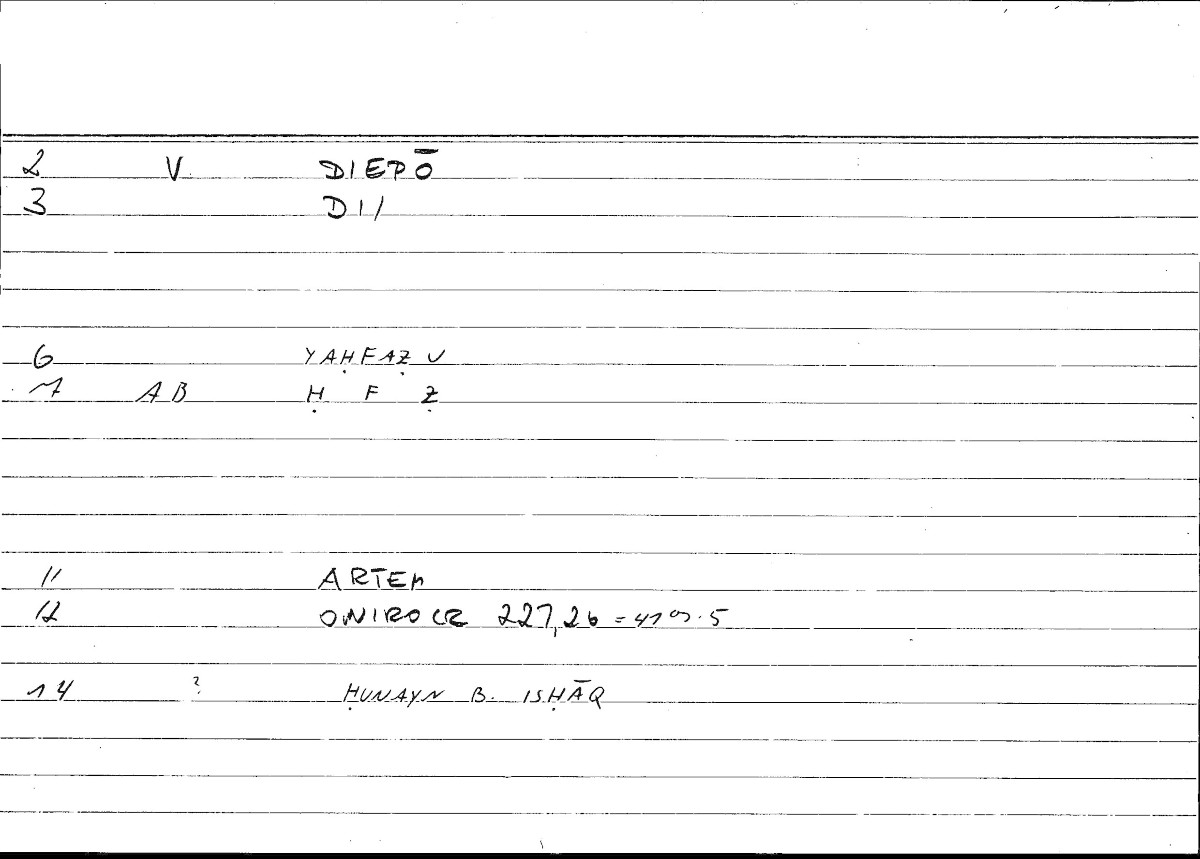 2 V DIEPŌ
3 DI/
6 YAḤFAẒU
7 AB Ḥ F Ẓ
11 ARTEM
12 ONIROCR 227,26 =
14 ? ḤUNAYN B. ISḤĀQ